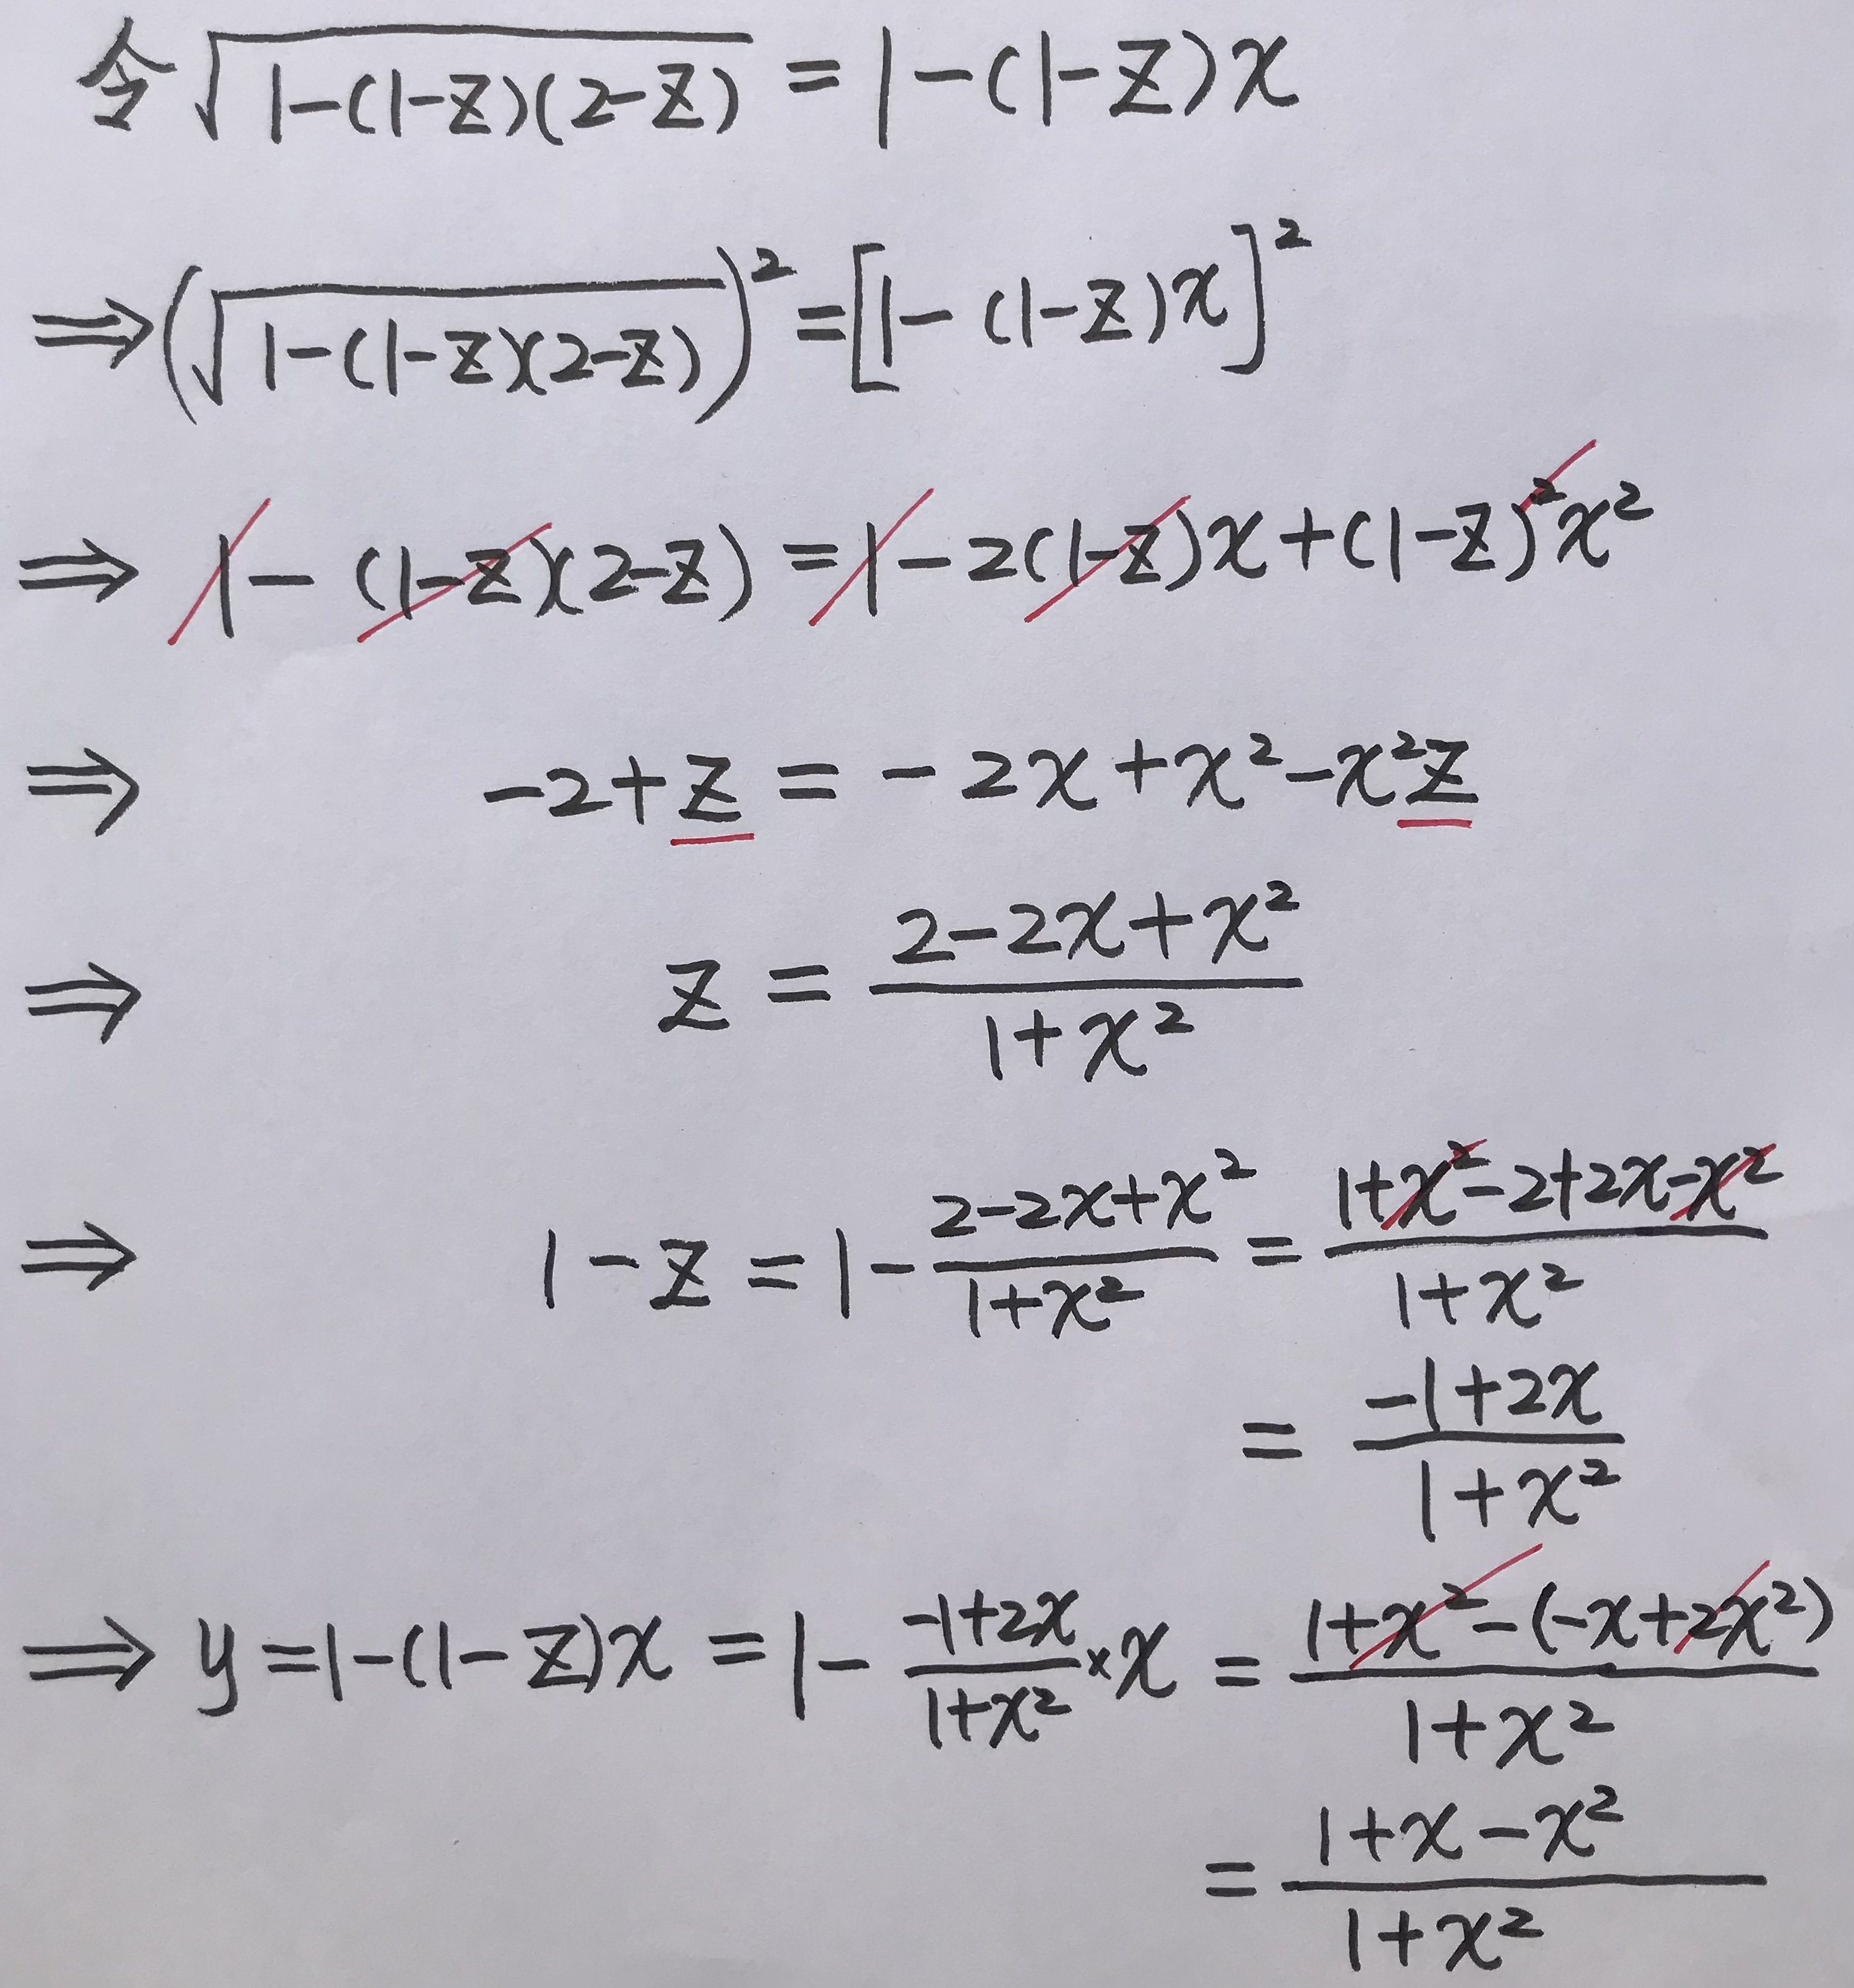 令 √(1-(1-z)(2-z)) = 1-(1-z)x
⇒ (√(1-(1-z)(2-z)))² = [1-(1-z)x]²
⇒ 1-(1-z)(2-z) = 1-2(1-z)x+(1-z)²x²
⇒ -2+z = -2x+x²-x²z
⇒ z = (2-2x+x²)/(1+x²)
⇒ 1-z = 1-(2-2x+x²)/(1+x²) = (1+x²-2+2x-x²)/(1+x²)
= (-1+2x)/(1+x²)
⇒ y = 1-(1-z)x = 1-(-1+2x)/(1+x²)×x = (1+x²-(-x+2x²))/(1+x²)
= (1+x-x²)/(1+x²)